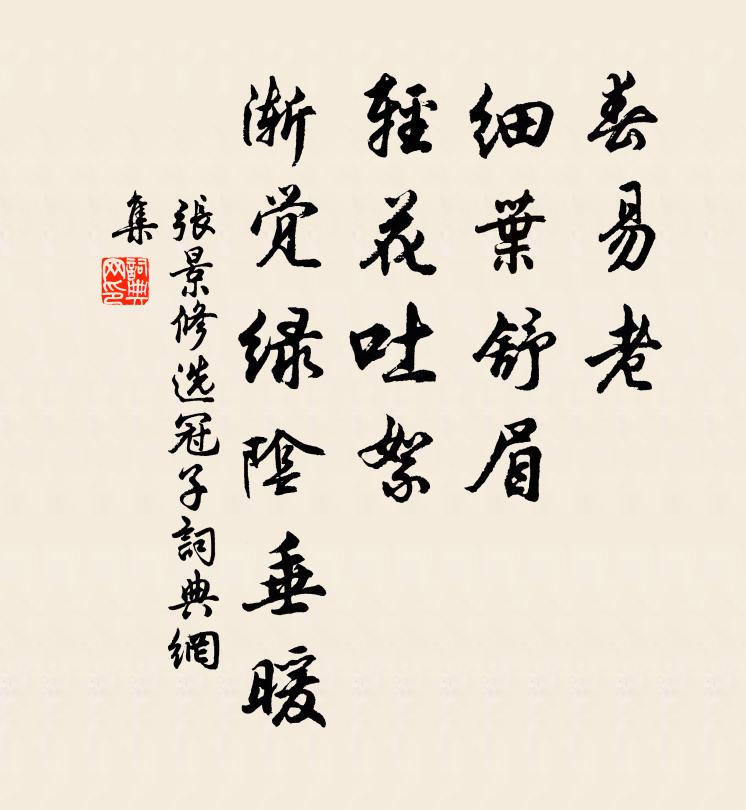 春易老
細葉舒眉
輕花吐絮
漸覚緑陰垂暖
張景修选冠子詞典網
集
詞典网印